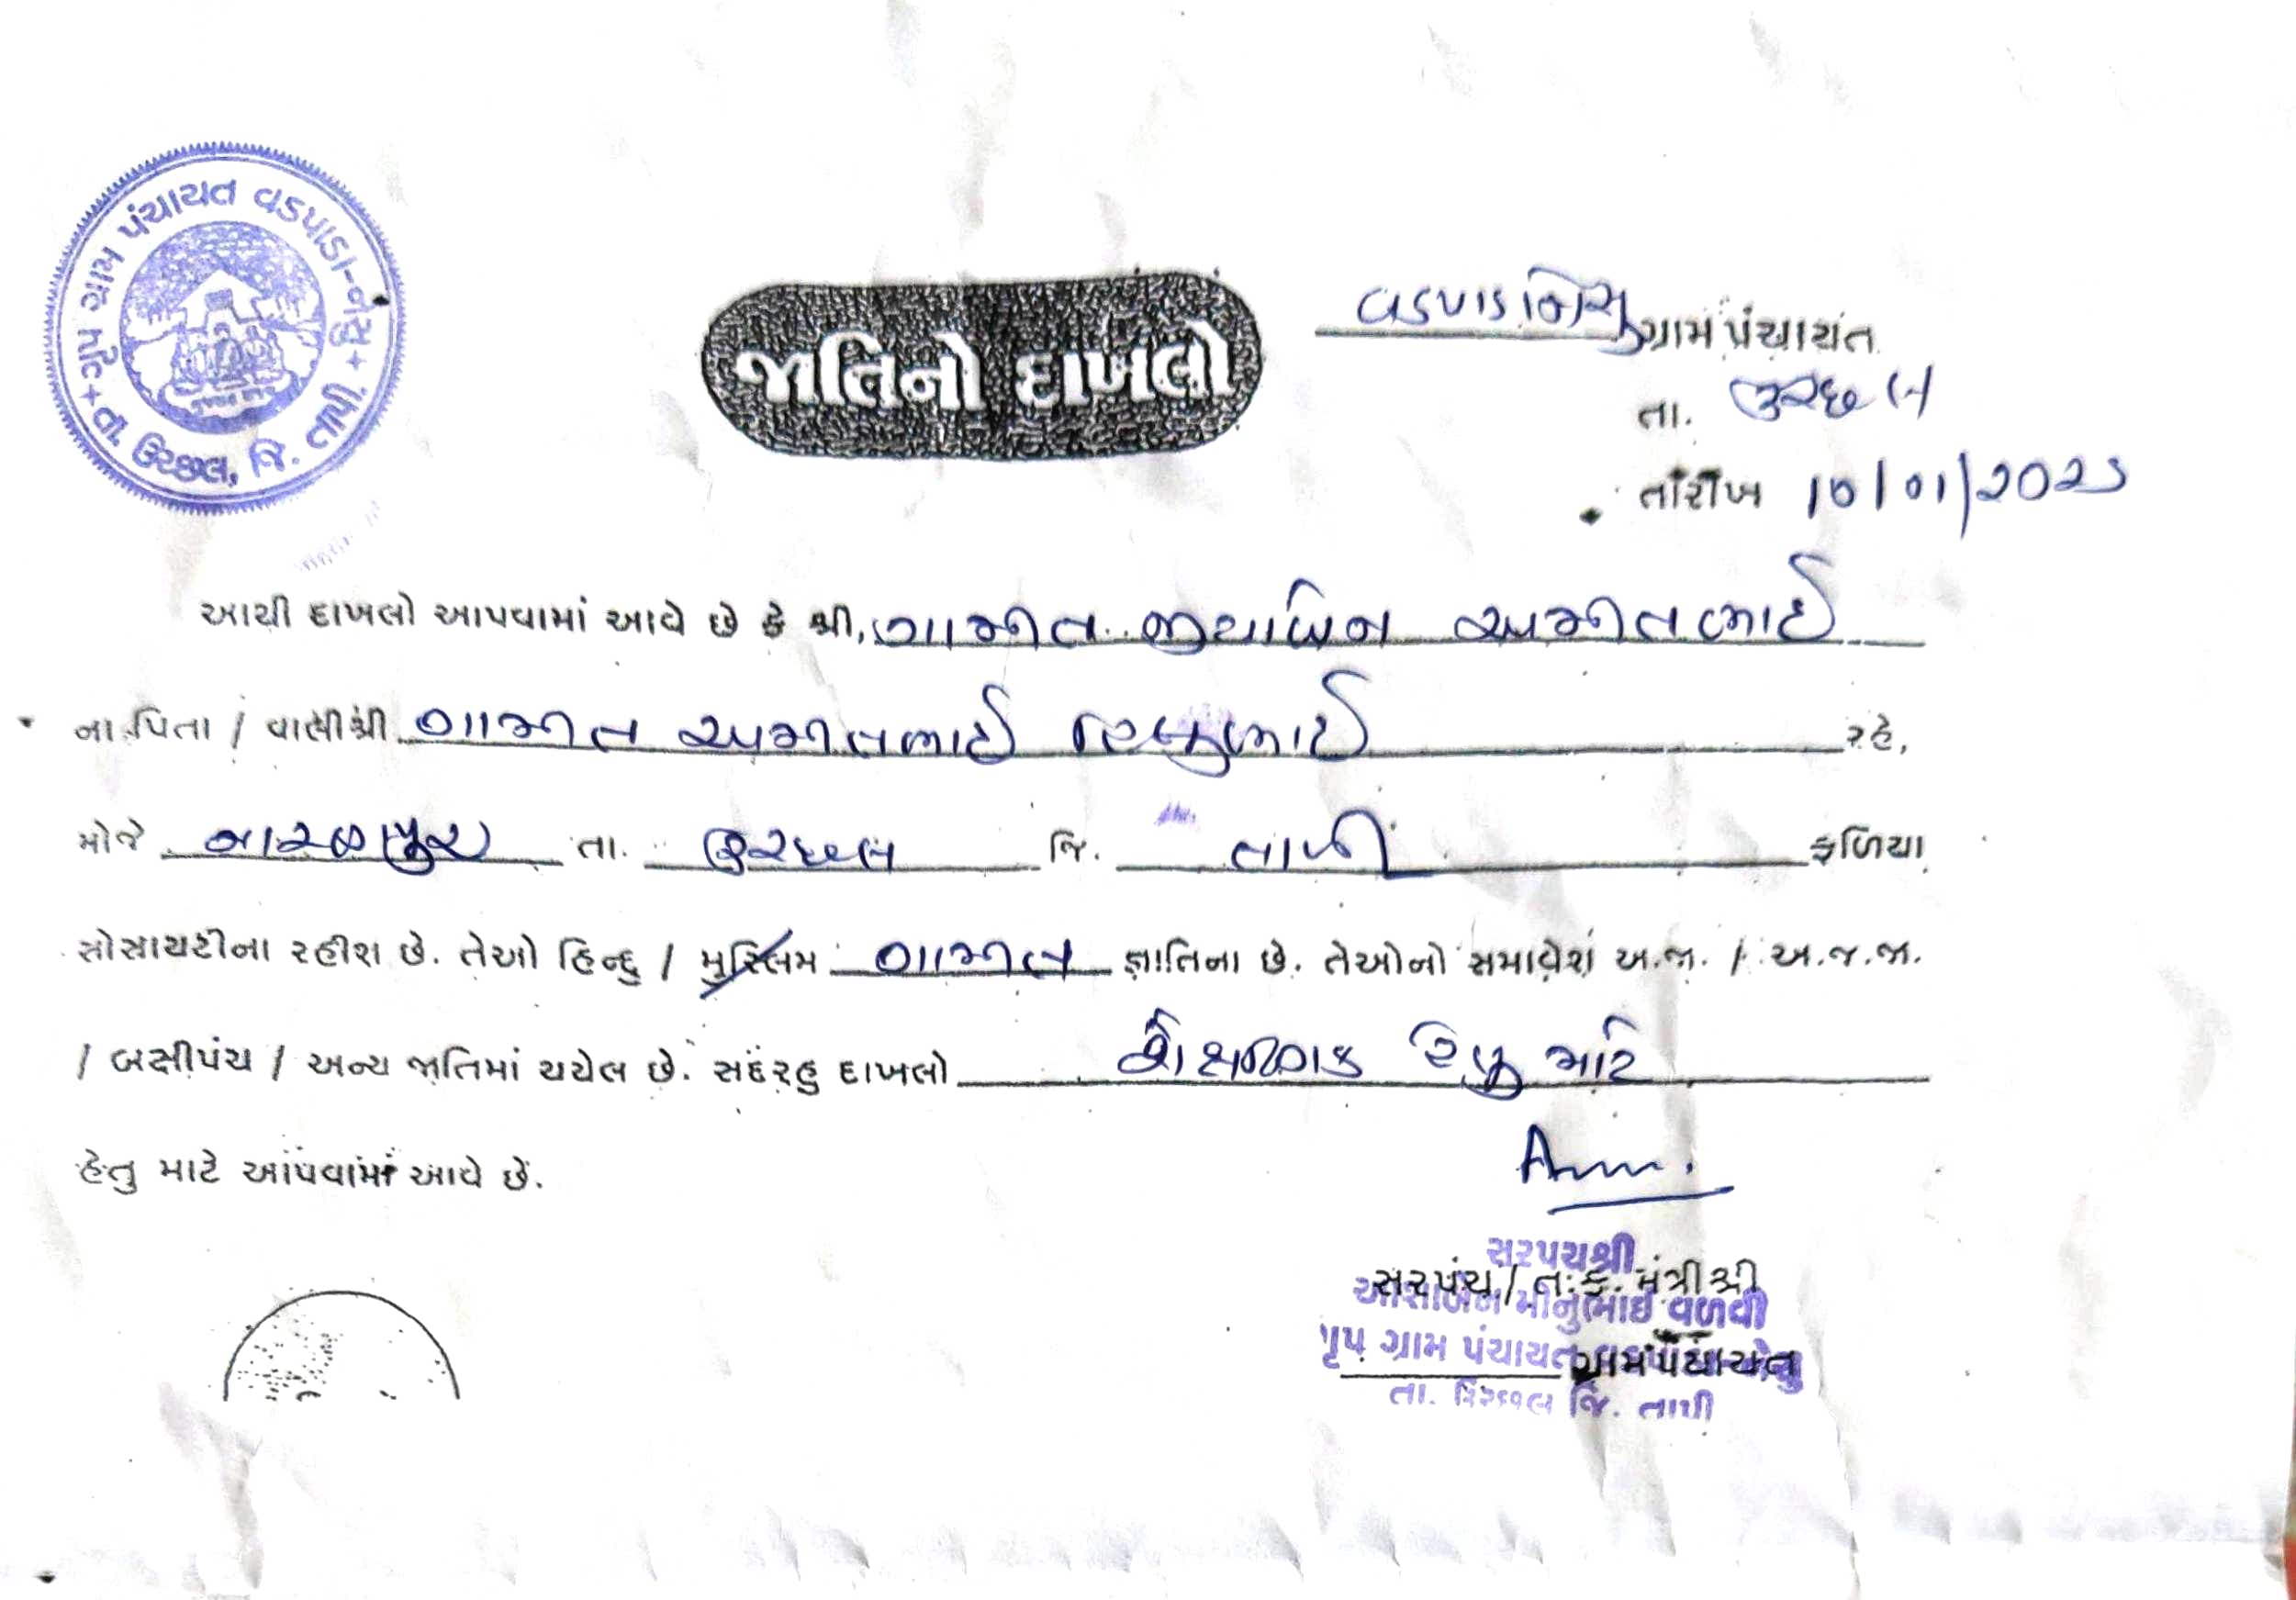 ગૃપ ગ્રામ પંચાયત વડપાડા-નેસુ
તા. ઉચ્છલ, જિ. તાપી
જાતિનો દાખલો
વડપાડા નેસુ ગ્રામ પંચાયત
તા. ઉચ્છલ
તારીખ 10/01/2023
આથી દાખલો આપવામાં આવે છે કે શ્રી, ગામીત અમીતભાઈ
ના પિતા / વાલીશ્રી ગામીત અમીતભાઈ રહે,
મોજે નારણપુર તા. ઉચ્છલ જિ. તાપી ફળિયા
સોસાયટીના રહીશ છે. તેઓ હિન્દુ / મુસ્લિમ ગામીત જ્ઞાતિના છે. તેઓનો સમાવેશ અ.જા. / અ.જ.જા.
/ બક્ષીપંચ / અન્ય જાતિમાં થયેલ છે. સદરહુ દાખલો શૈક્ષણિક હેતુ માટે
હેતુ માટે આપવામાં આવે છે.
સરપંચશ્રી
સરપંચ / ત.ક. મંત્રીશ્રી
વળવી
ગૃપ ગ્રામ પંચાયત
ગ્રામ પંચાયત
તા. ઉચ્છલ જિ. તાપી